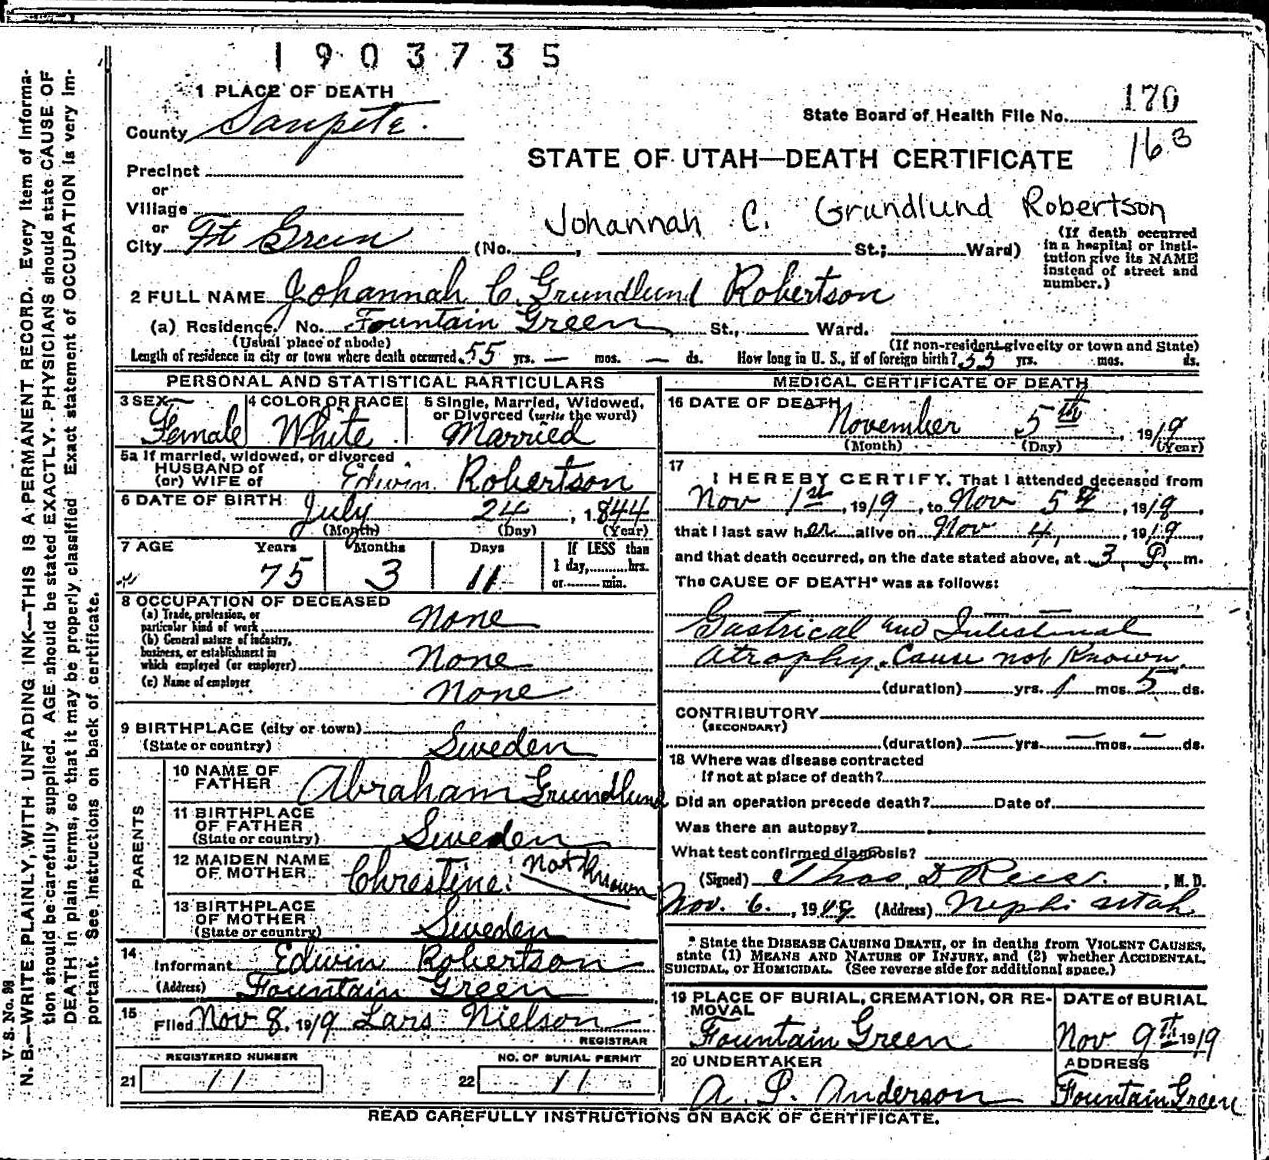 1903735
1 PLACE OF DEATH
County Sanpete.
State Board of Health File No. 170
163
STATE OF UTAH—DEATH CERTIFICATE
Precinct
or
Village
or
City Ft Green (No. , St.; Ward)
Johannah C. Grundlund Robertson
(If death occurred in a hospital or institution give its NAME instead of street and number.)
2 FULL NAME Johannah C. Grundlund Robertson
(a) Residence. No. Fountain Green St., Ward.
(Usual place of abode) (If non-resident give city or town and State)
Length of residence in city or town where death occurred 55 yrs. — mos. — ds. How long in U. S., if of foreign birth? 55 yrs. mos. ds.
PERSONAL AND STATISTICAL PARTICULARS
3 SEX Female
4 COLOR OR RACE White
5 Single, Married, Widowed, or Divorced (write the word) Married
5a If married, widowed, or divorced
HUSBAND of
(or) WIFE of Edwin Robertson
6 DATE OF BIRTH July 24, 1844
(Month) (Day) (Year)
7 AGE Years Months Days If LESS than
75 3 11 1 day, hrs.
or min.
8 OCCUPATION OF DECEASED
(a) Trade, profession, or
particular kind of work None
(b) General nature of industry,
business, or establishment in
which employed (or employer) None
(c) Name of employer None
9 BIRTHPLACE (city or town)
(State or country) Sweden
PARENTS
10 NAME OF
FATHER Abraham Grundlund
11 BIRTHPLACE
OF FATHER
(State or country) Sweden
12 MAIDEN NAME
OF MOTHER Chrestine. Not Known
13 BIRTHPLACE
OF MOTHER
(State or country) Sweden
14
Informant Edwin Robertson
(Address) Fountain Green
15
Filed Nov 8, 1919 Lars Nielson
REGISTRAR
REGISTERED NUMBER
21 11
NO. OF BURIAL PERMIT
22 11
MEDICAL CERTIFICATE OF DEATH
16 DATE OF DEATH
November 5th, 1919
(Month) (Day) (Year)
17
I HEREBY CERTIFY, That I attended deceased from
Nov 1st, 1919, to Nov 5th, 1919,
that I last saw her alive on Nov 4, 1919,
and that death occurred, on the date stated above, at 3 P. m.
The CAUSE OF DEATH* was as follows:
Gastrical and Intestinal
Atrophy. Cause not Known
(duration) yrs. 1 mos. 5 ds.
CONTRIBUTORY
(SECONDARY)
(duration) — yrs. — mos. — ds.
18 Where was disease contracted
If not at place of death?
Did an operation precede death? Date of
Was there an autopsy?
What test confirmed diagnosis?
(Signed) Thos. D Rees., M. D.
Nov. 6., 1919 (Address) Nephi Utah
* State the DISEASE CAUSING DEATH, or in deaths from VIOLENT CAUSES,
state (1) MEANS AND NATURE OF INJURY, and (2) whether ACCIDENTAL,
SUICIDAL, or HOMICIDAL. (See reverse side for additional space.)
19 PLACE OF BURIAL, CREMATION, OR REMOVAL
Fountain Green
DATE of BURIAL
Nov 9th 1919
20 UNDERTAKER
A. L. Anderson
ADDRESS
Fountain Green
READ CAREFULLY INSTRUCTIONS ON BACK OF CERTIFICATE.
V. S. No. 98
N. B.—WRITE PLAINLY, WITH UNFADING INK—THIS IS A PERMANENT RECORD. Every item of informa-
tion should be carefully supplied. AGE should be stated EXACTLY. PHYSICIANS should state CAUSE OF
DEATH in plain terms, so that it may be properly classified. Exact statement of OCCUPATION is very im-
portant. See instructions on back of certificate.